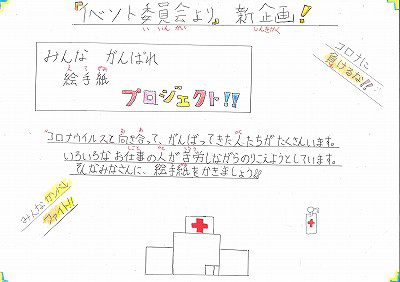 『イベント委員会より』新企画!
いいんかい
しんきかく
みんな がんばれ
絵手紙
プロジェクト!!
コロナに
負けるな!!
コロナウイルスと向き合って、がんばってきた人たちがたくさんいます。
いろいろなお仕事の人が苦労しながらのりこえようとしています。
そんなみなさんに、絵手紙をかきましょう!!
みんなガンバレ
ファイト!!